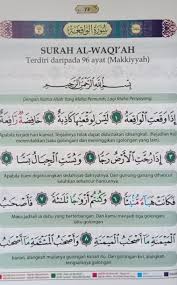 سُورَةُ الْوَاقِعَةِ
SURAH AL-WAQI'AH
Terdiri daripada 96 ayat (Makkiyyah)
بِسْمِ اللَّهِ الرَّحْمَٰنِ الرَّحِيمِ
Dengan Nama Allah Yang Maha Pemurah, Lagi Maha Penyayang
إِذَا وَقَعَتِ الْوَاقِعَةُ ١ لَيْسَ لِوَقْعَتِهَا كَاذِبَةٌ ٢ خَافِضَةٌ رَّافِعَةٌ ٣
Apabila terjadi hari kiamat. Terjadinya tidak dapat didustakan (disangkal). (Kejadian itu)
merendahkan (satu golongan) dan meninggikan (golongan yang lain)
إِذَا رُجَّتِ الْأَرْضُ رَجًّا ٤ وَبُسَّتِ الْجِبَالُ بَسًّا ٥
Apabila bumi digoncangkan sedahsyat-dahsyatnya. Dan gunung-ganang dihancur
luluhkan sehancur-hancurnya
فَكَانَتْ هَبَاءً مُّنْبَثًّا ٦ وَكُنتُمْ أَزْوَاجًا ثَلَاثَةً ٧ فَأَصْحَابُ
Maka jadilah ia debu yang berterbangan. Dan kamu menjadi tiga golongan. Iaitu golongan
الْمَيْمَنَةِ مَا أَصْحَابُ الْمَيْمَنَةِ ٨ وَأَصْحَابُ الْمَشْأَمَةِ مَا أَصْحَابُ
kanan, alangkah mulianya golongan kanan itu. Dan golongan kiri, alangkah